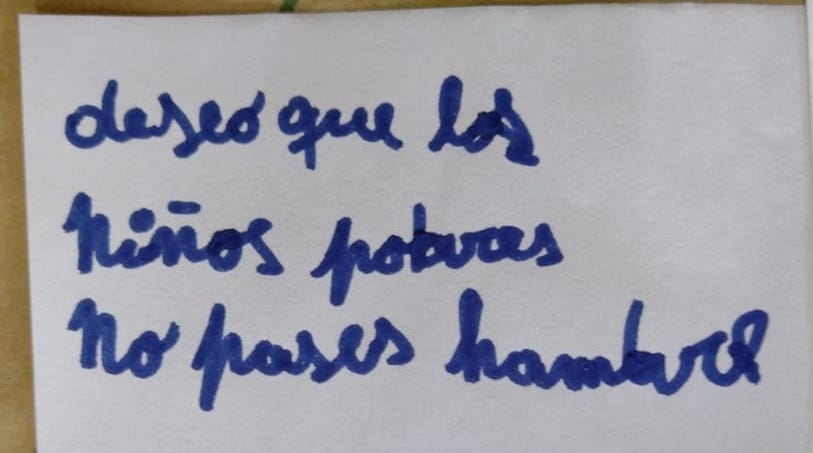 deseo que los
Niños pobres
No pases hambre